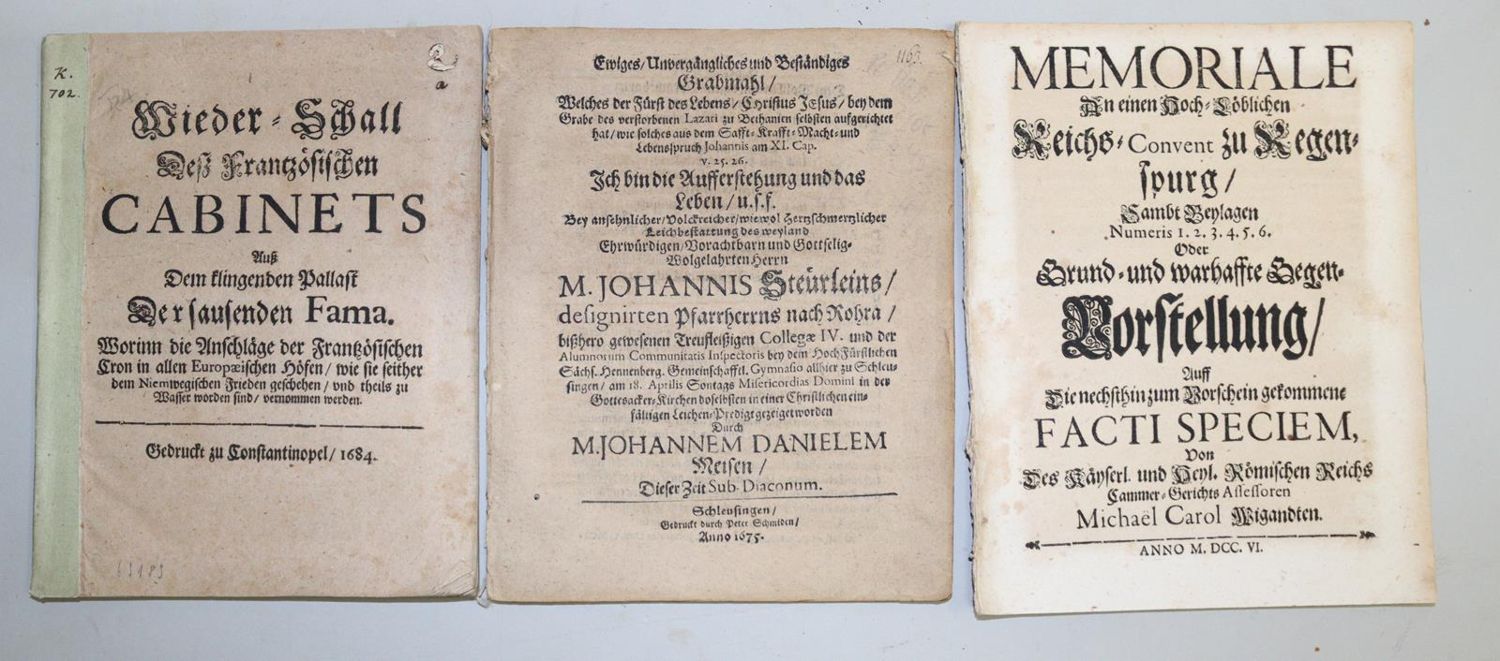 K.
702.
2
a
Wieder-Schall
Deß Frantzösischen
CABINETS
Auß
Dem klingenden Pallast
Der sausenden Fama.
Worinn die Anschläge der Frantzösischen
Cron in allen Europæischen Höfen/ wie sie seither
dem Niemwegischen Frieden geschehen/ vnd theils zu
Wasser worden sind/ vernommen werden.
Gedruckt zu Constantinopel/ 1684.
63183
1163.
Ewiges/ Unvergängliches und Beständiges
Grabmahl/
Welches der Fürst des Lebens/ Christus Jesus/ bey dem
Grabe des verstorbenen Lazari zu Bethanien selbsten aufgerichtet
hat/ wie solches aus dem Safft-Krafft-Macht-und
Lebensspruch Johannis am XI. Cap.
v. 25. 26.
Ich bin die Aufferstehung und das
Leben/ u.s.f.
Bey ansehnlicher/ Volckreicher/ wiewol Hertzschmertzlicher
Leichbestattung des weyland
Ehrwürdigen/ Vorachtbarn und Gottselig-
Wolgelahrten Herrn
M. JOHANNIS Steürleins/
designirten Pfarrherrns nach Rohra/
bißhero gewesenen Treufleißigen Collegæ IV. und der
Alumnorum Communitatis Inspectoris bey dem HochFürstlichen
Sächs. Hennenberg. Gemeinschafftl. Gymnasio allhier zu Schleu-
singen/ am 18. Aprilis Sontags Misericordias Domini in der
Gottesacker-Kirchen doselbsten in einer Christlichen ein-
fältigen Leichen-Predigt gezeiget worden
Durch
M. JOHANNEM DANIELEM
Meisen/
Dieser Zeit Sub-Diaconum.
Schleusingen/
Gedruckt durch Peter Schmiden/
Anno 1675.
MEMORIALE
An einen Hoch-Löblichen
Reichs-Convent zu Regen-
spurg/
Sambt Beylagen
Numeris 1. 2. 3. 4. 5. 6.
Oder
Grund-und warhaffte Gegen-
Vorstellung/
Auff
Die nechsthin zum Vorschein gekommene
FACTI SPECIEM,
Von
Des Käyserl. und Heyl. Römischen Reichs
Cammer-Gerichts Assessoren
Michaël Carol Wigandten.
ANNO M. DCC. VI.